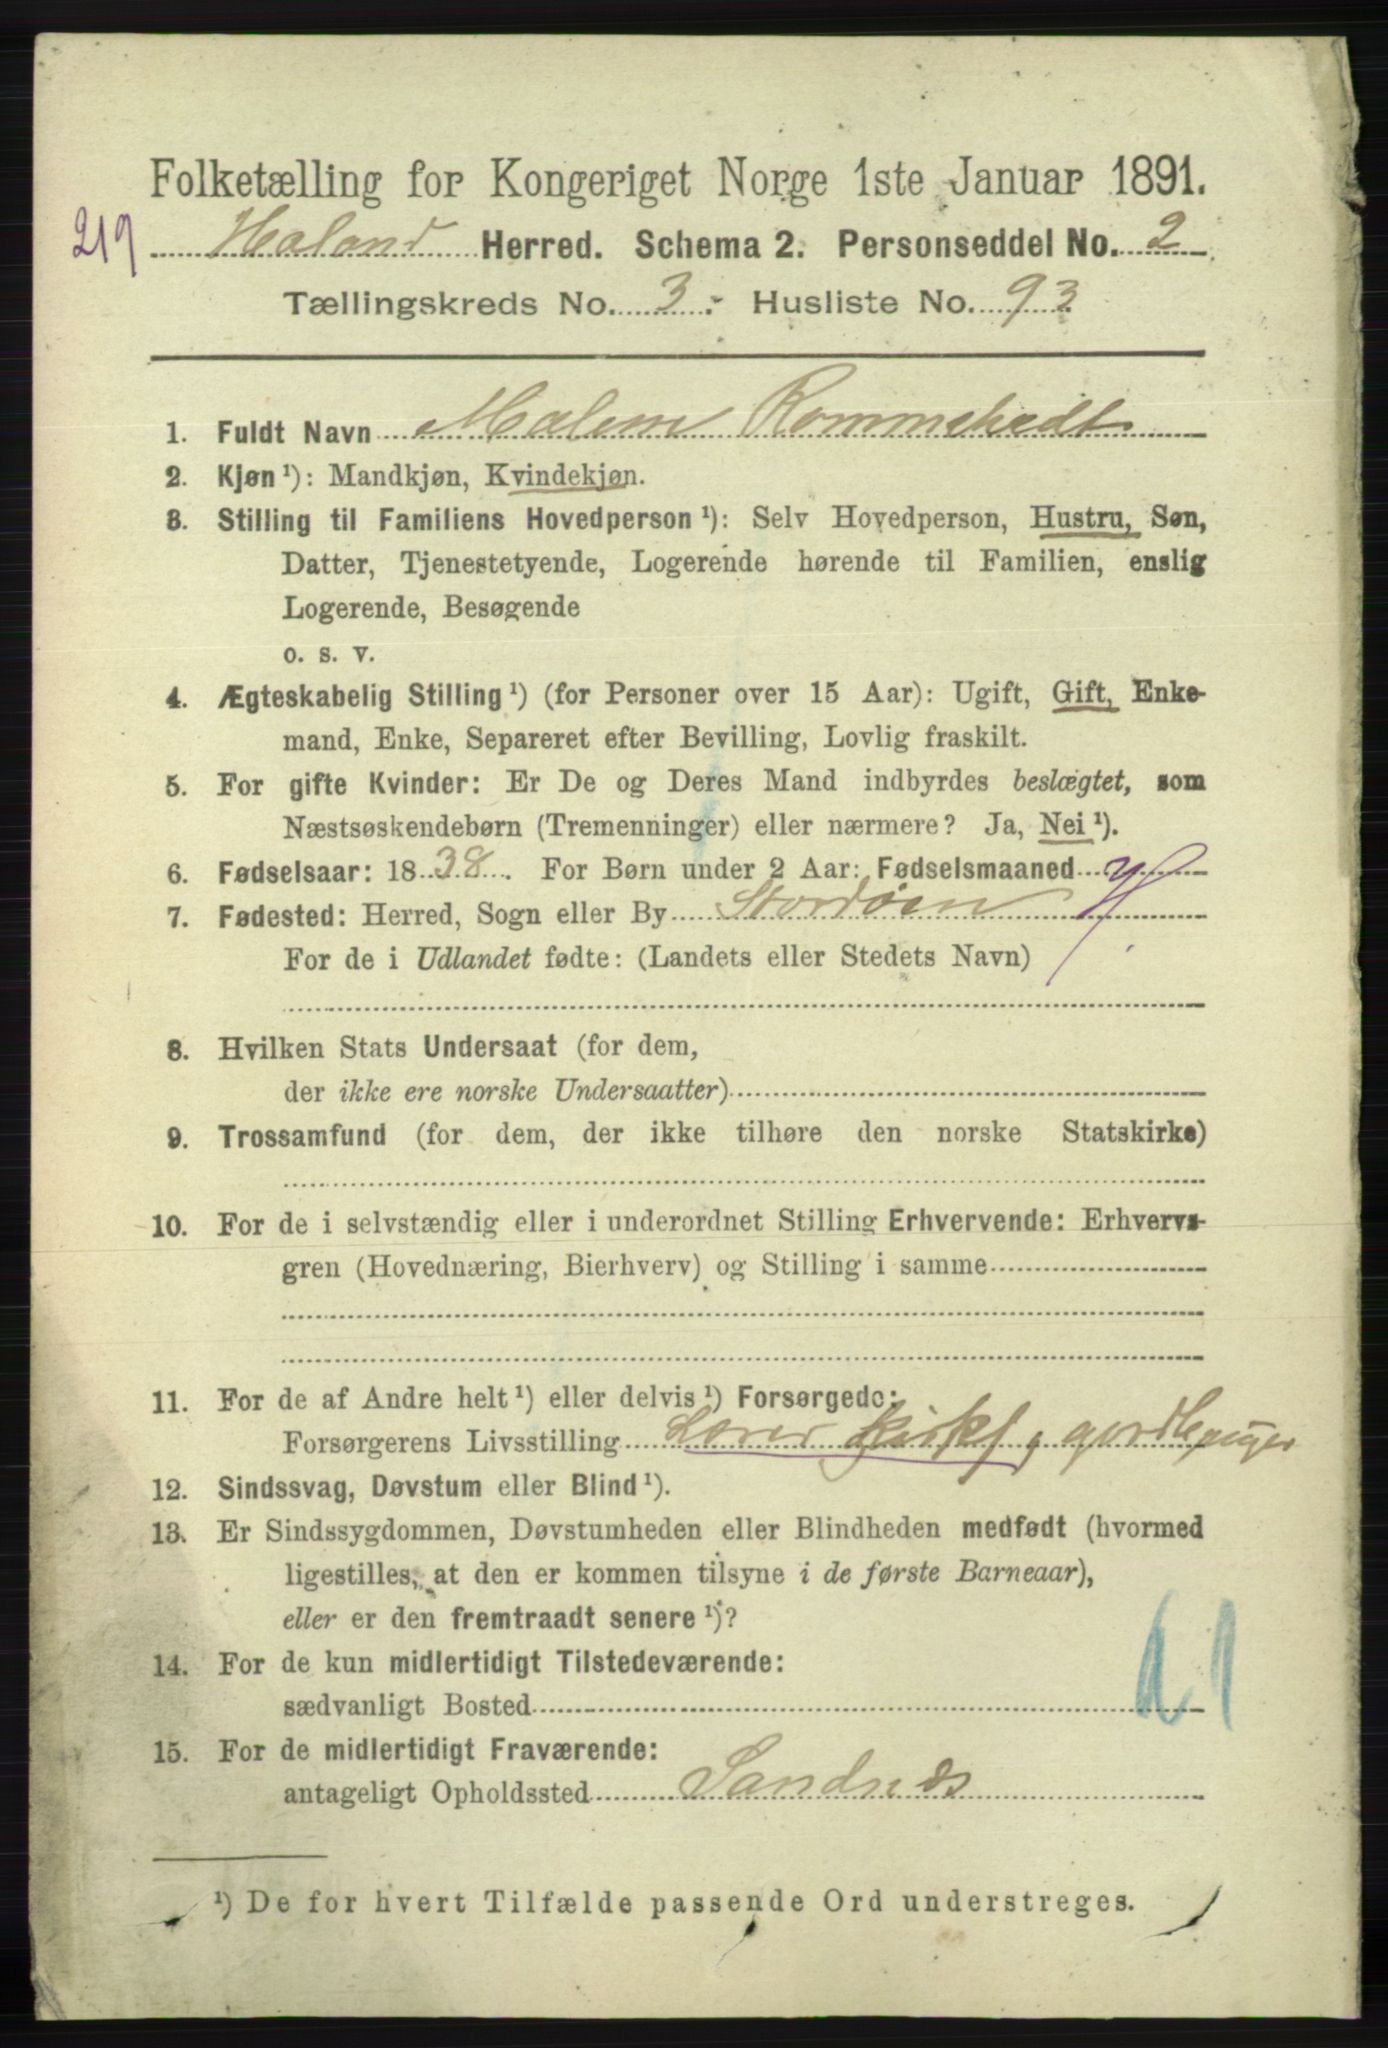 Folketælling for Kongeriget Norge 1ste Januar 1891.
219 Haland Herred. Schema 2. Personseddel No. 2
Tællingskreds No. 3. Husliste No. 93
1. Fuldt Navn Malene Rommetvedt
2. Kjøn ¹): Mandkjøn, Kvindekjøn.
3. Stilling til Familiens Hovedperson ¹): Selv Hovedperson, Hustru, Søn,
Datter, Tjenestetyende, Logerende hørende til Familien, enslig
Logerende, Besøgende
o. s. v.
4. Ægteskabelig Stilling ¹) (for Personer over 15 Aar): Ugift, Gift, Enke-
mand, Enke, Separeret efter Bevilling, Lovlig fraskilt.
5. For gifte Kvinder: Er De og Deres Mand indbyrdes beslægtet, som
Næstsøskendebørn (Tremenninger) eller nærmere? Ja, Nei ¹).
6. Fødselsaar: 1838. For Børn under 2 Aar: Fødselsmaaned
7. Fødested: Herred, Sogn eller By Stordøen
For de i Udlandet fødte: (Landets eller Stedets Navn)
8. Hvilken Stats Undersaat (for dem,
der ikke ere norske Undersaatter)
9. Trossamfund (for dem, der ikke tilhøre den norske Statskirke)
10. For de i selvstændig eller i underordnet Stilling Erhvervende: Erhvervs-
gren (Hovednæring, Bierhverv) og Stilling i samme
11. For de af Andre helt ¹) eller delvis ¹) Forsørgede:
Forsørgerens Livsstilling Lærer Kirks, gordbruger
12. Sindssvag, Døvstum eller Blind ¹).
13. Er Sindssygdommen, Døvstumheden eller Blindheden medfødt (hvormed
ligestilles, at den er kommen tilsyne i de første Barneaar),
eller er den fremtraadt senere ¹)?
14. For de kun midlertidigt Tilstedeværende:
sædvanligt Bosted
15. For de midlertidigt Fraværende:
antageligt Opholdssted Sandnæs
¹) De for hvert Tilfælde passende Ord understreges.